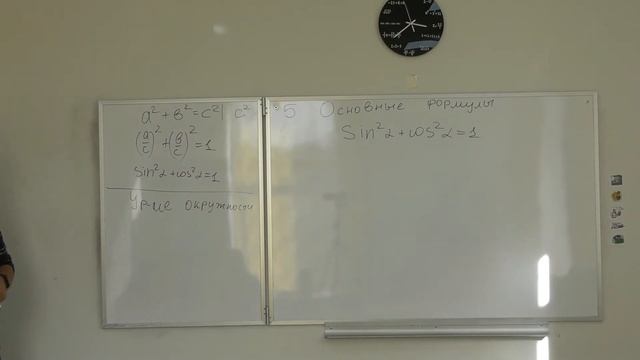 a² + b² = c² | c²
(a/c)² + (b/c)² = 1
sin²α + cos²α = 1
Ур-ие окружности
5 Основные формулы
Sin²α + cos²α = 1